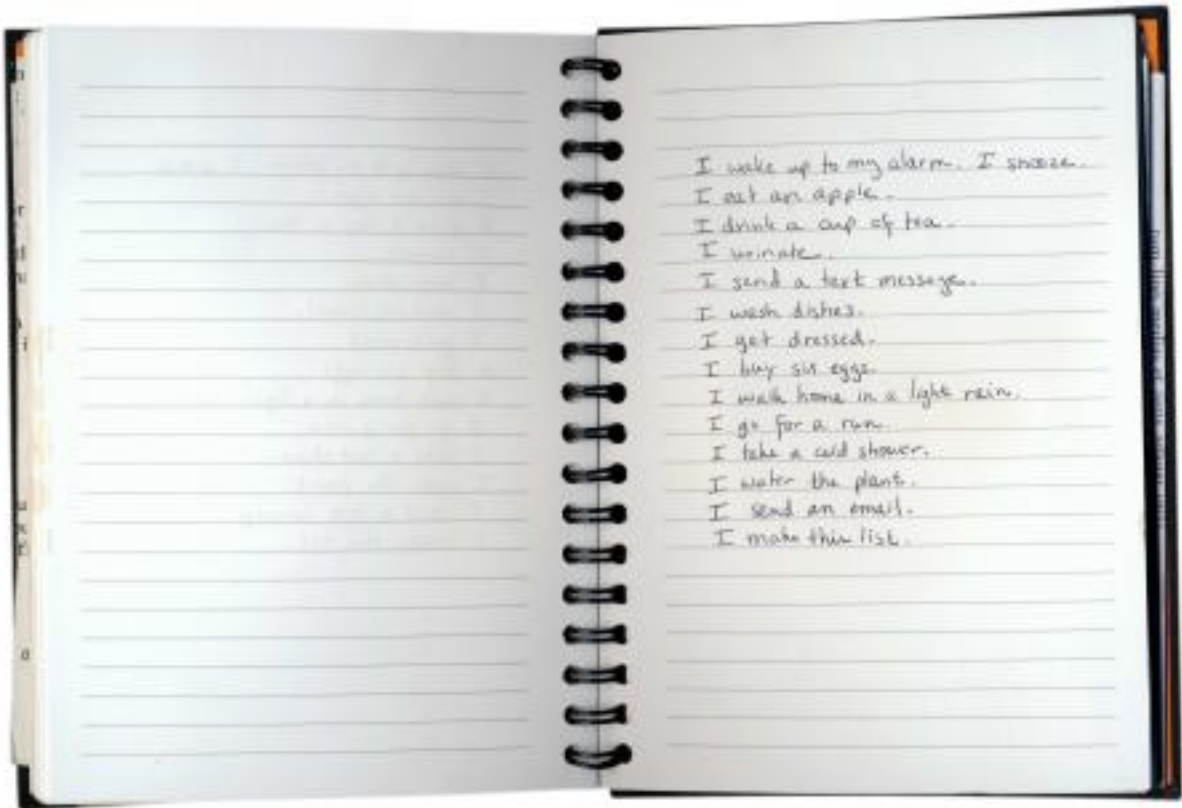 I wake up to my alarm. I snooze.
I eat an apple.
I drink a cup of tea.
I urinate.
I send a text message.
I wash dishes.
I get dressed.
I buy six eggs.
I walk home in a light rain.
I go for a run.
I take a cold shower.
I water the plant.
I send an email.
I make this list.